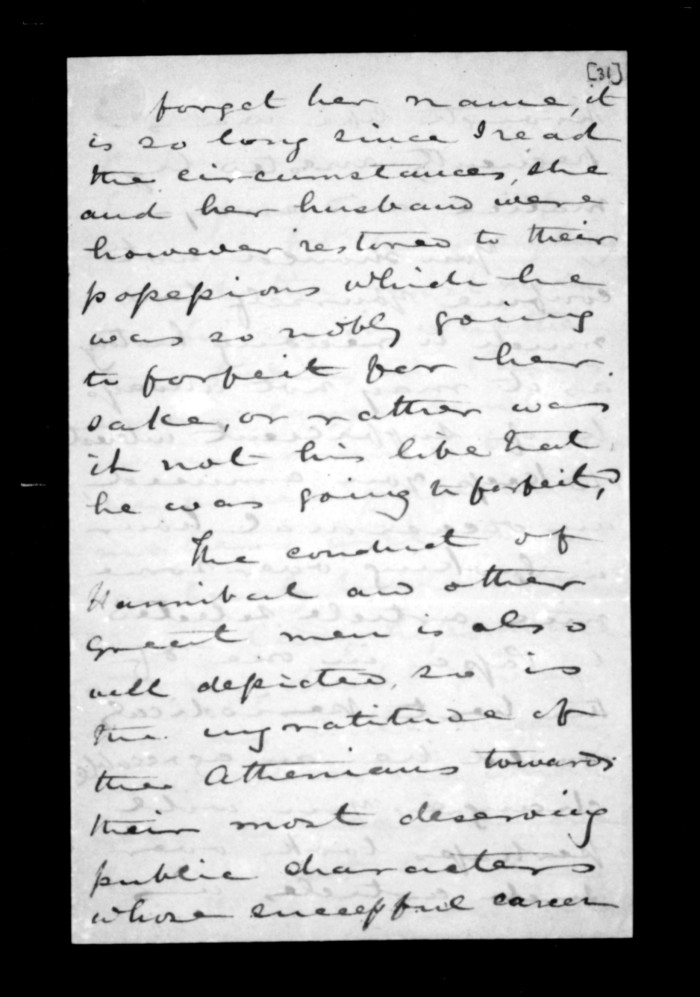 [31]
forget her name, it
is so long since I read
the circumstances, she
and her husband were
however restored to their
possessions which he
was so nobly going
to forfeit for her
sake, or rather was
it not his life that
he was going to forfeit?
The conduct of
Hannibal and other
great men is also
well depicted, so is
the ingratitude of
the Athenians towards
their most deserving
public characters
whose successful career